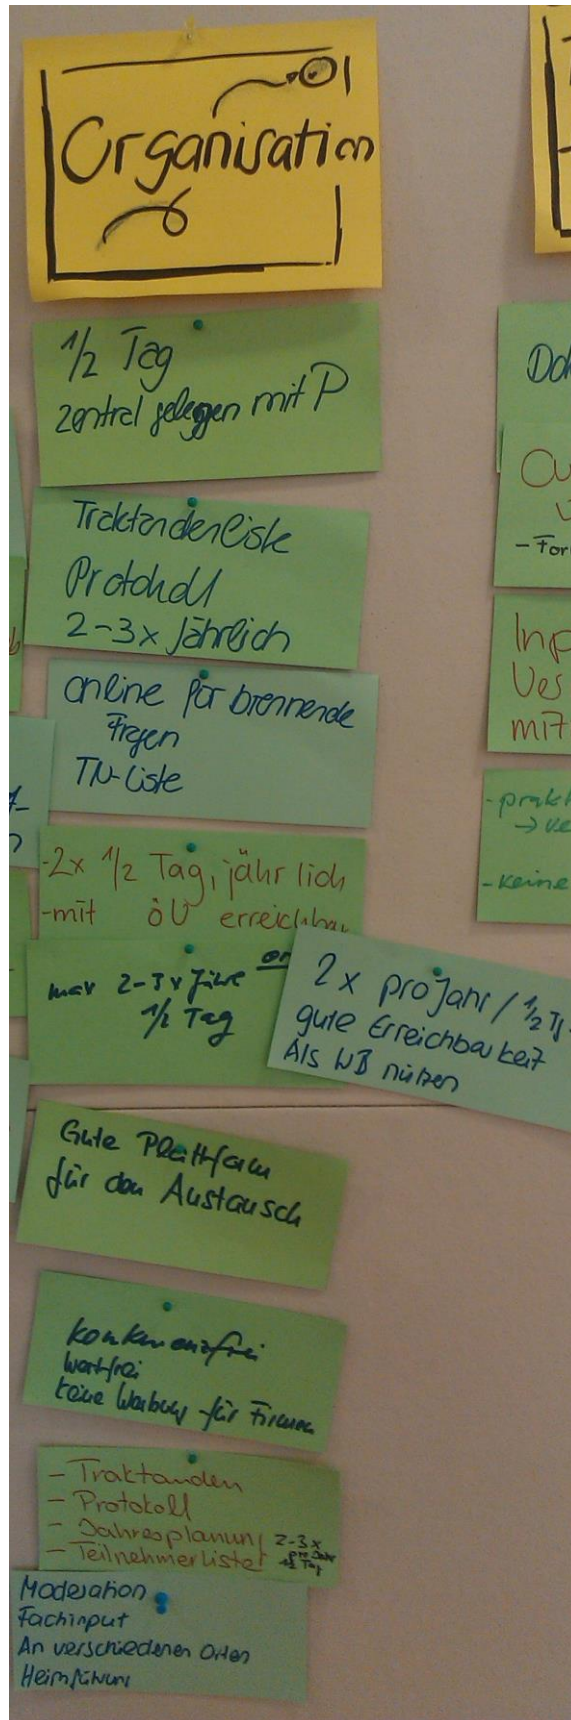 Organisation
1/2 Tag
zentral gelegen mit P
Traktandenliste
Protokoll
2-3x jährlich
online für brennende
Fragen
TN-Liste
-2x 1/2 Tag, jährlich
-mit öV erreichbar
max 2-3x Jahr
1/2 Tag
2x pro Jahr / 1/2 Tg.
gute Erreichbarkeit
Als WB nützen
Gute Plattform
für den Austausch
konkurrenzfrei
wertfrei
keine Werbung für Firmen
- Traktanden
- Protokoll
- Jahresplanung
- Teilnehmerliste
2-3x
pro Jahr
1/2 Tag
Moderation
Fachinput
An verschiedenen Orten
Heimführung
Inp
Ves
mit
-prakt
→ ve
-keine